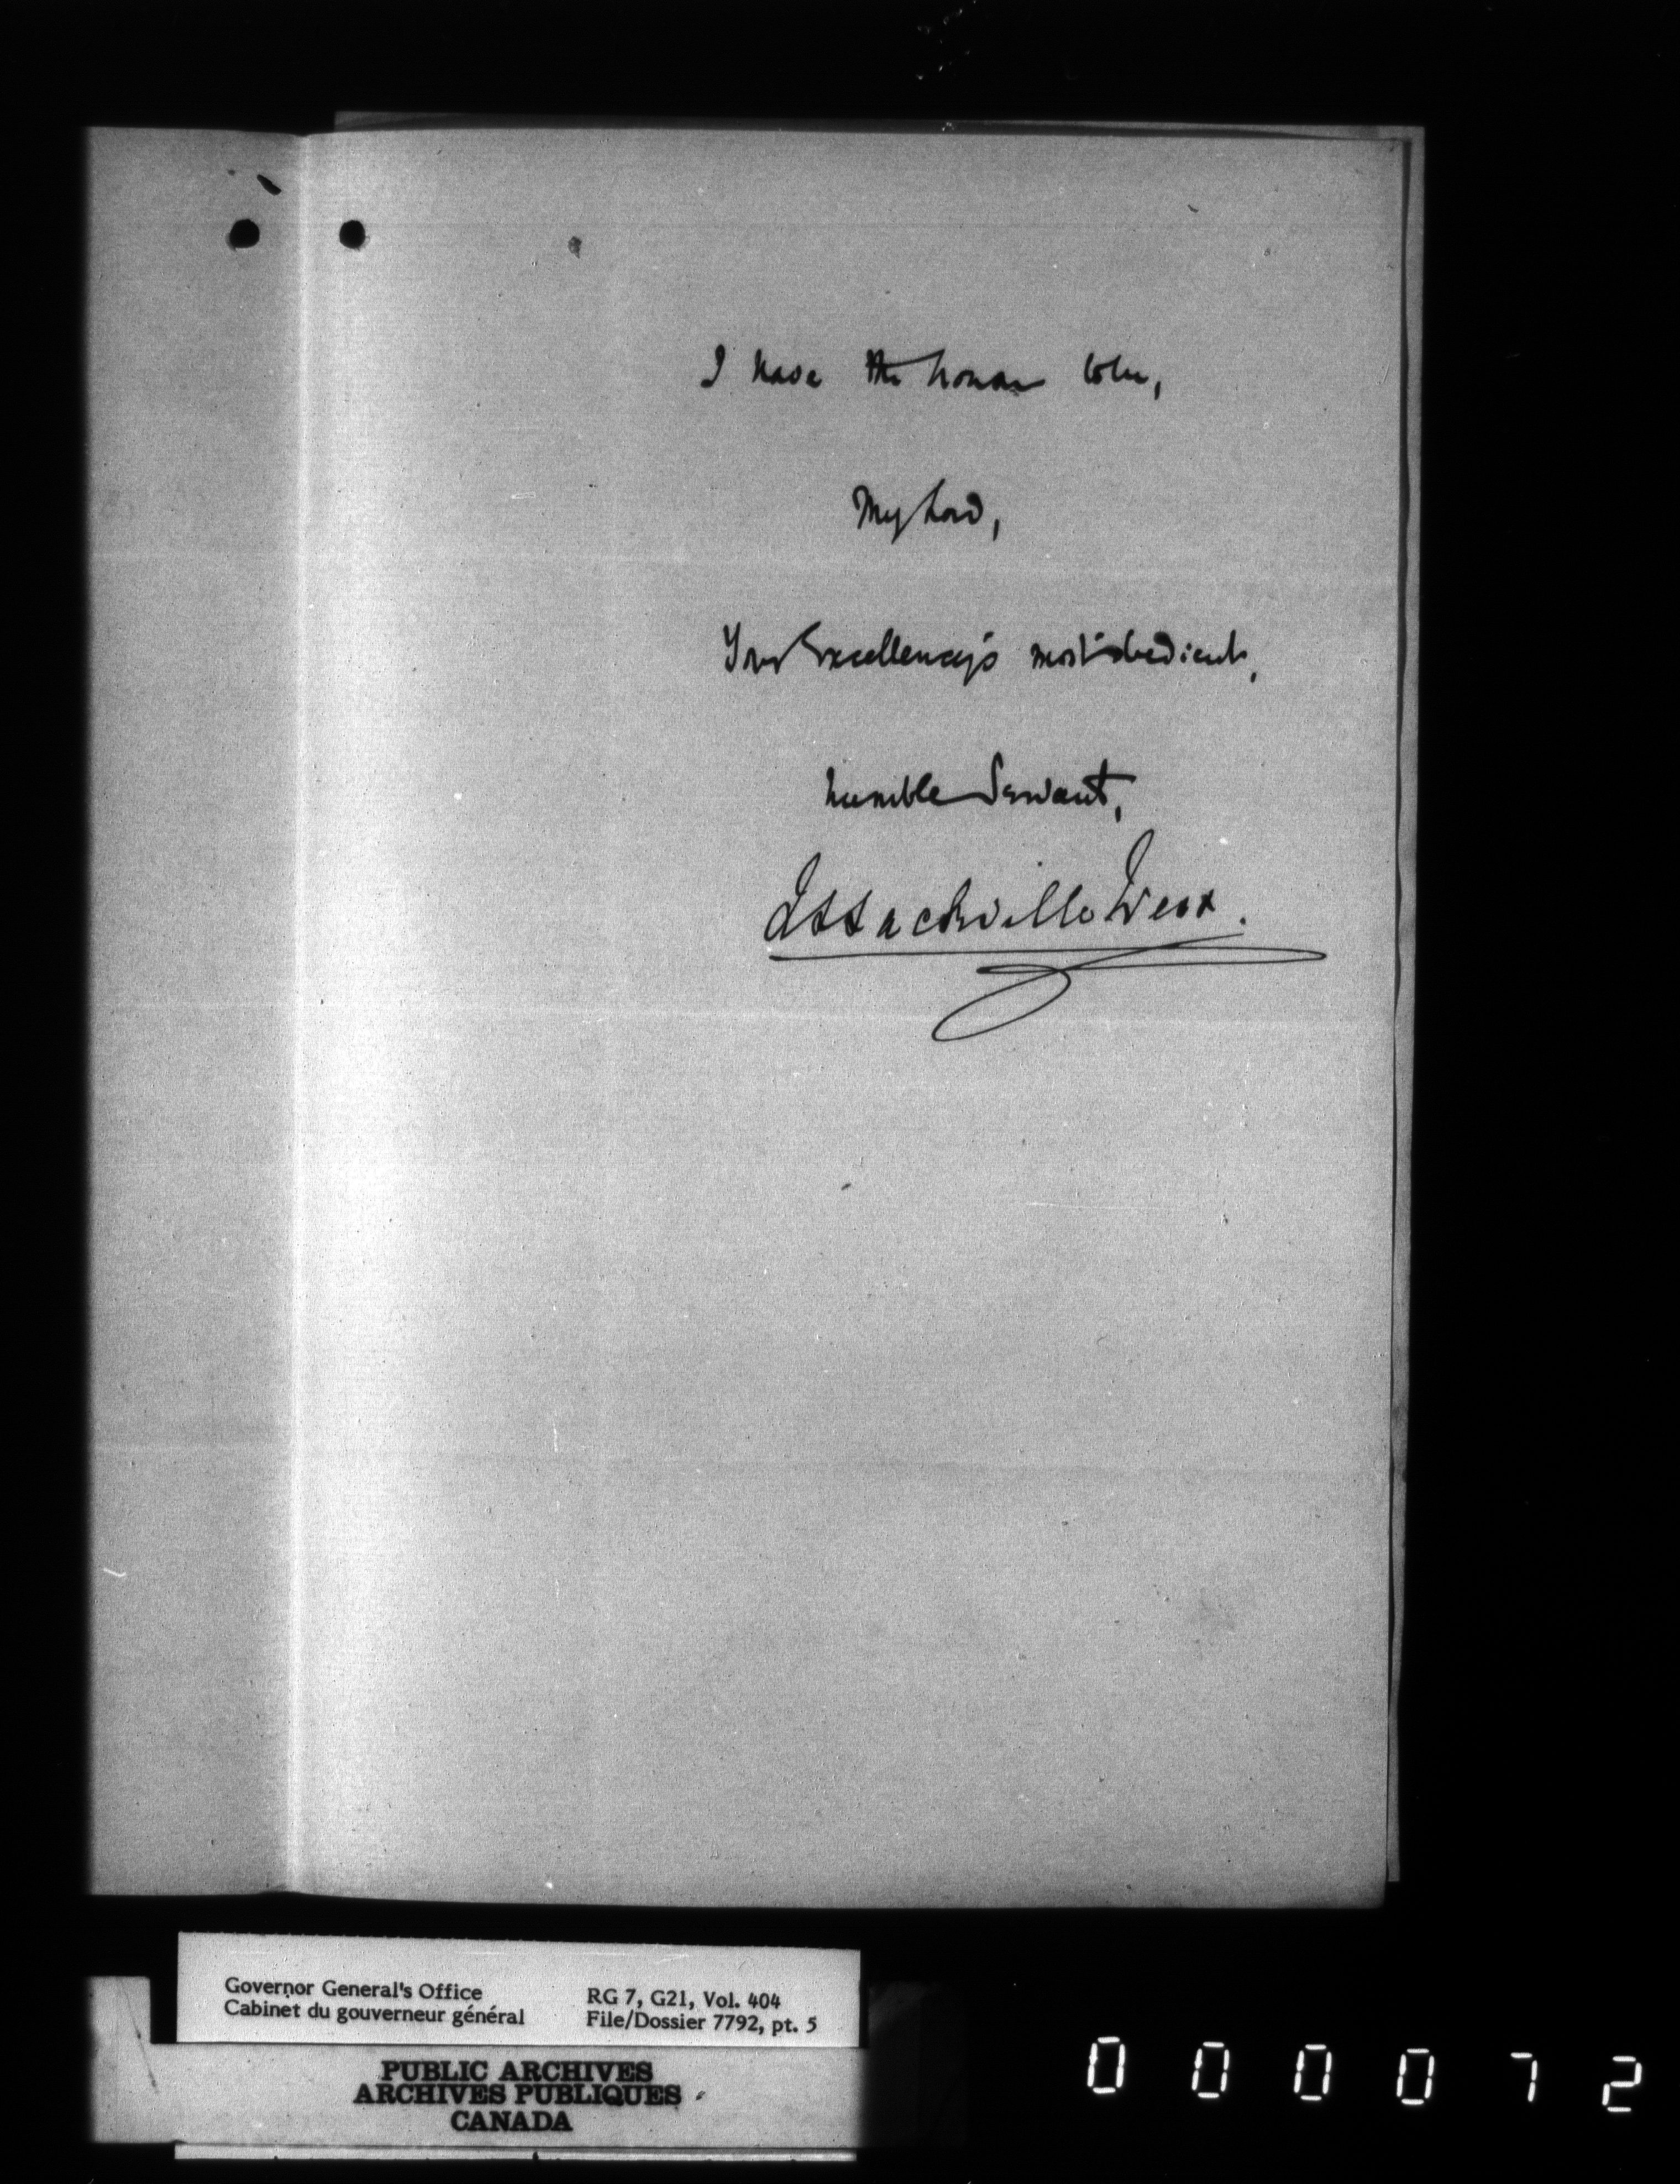 I have the honour to be,
My Lord,
Your Excellency's most obedient,
humble Servant,
LSSackville West.
Governor General's Office
Cabinet du gouverneur général
RG 7, G21, Vol. 404
File/Dossier 7792, pt. 5
PUBLIC ARCHIVES
ARCHIVES PUBLIQUES
CANADA
000072